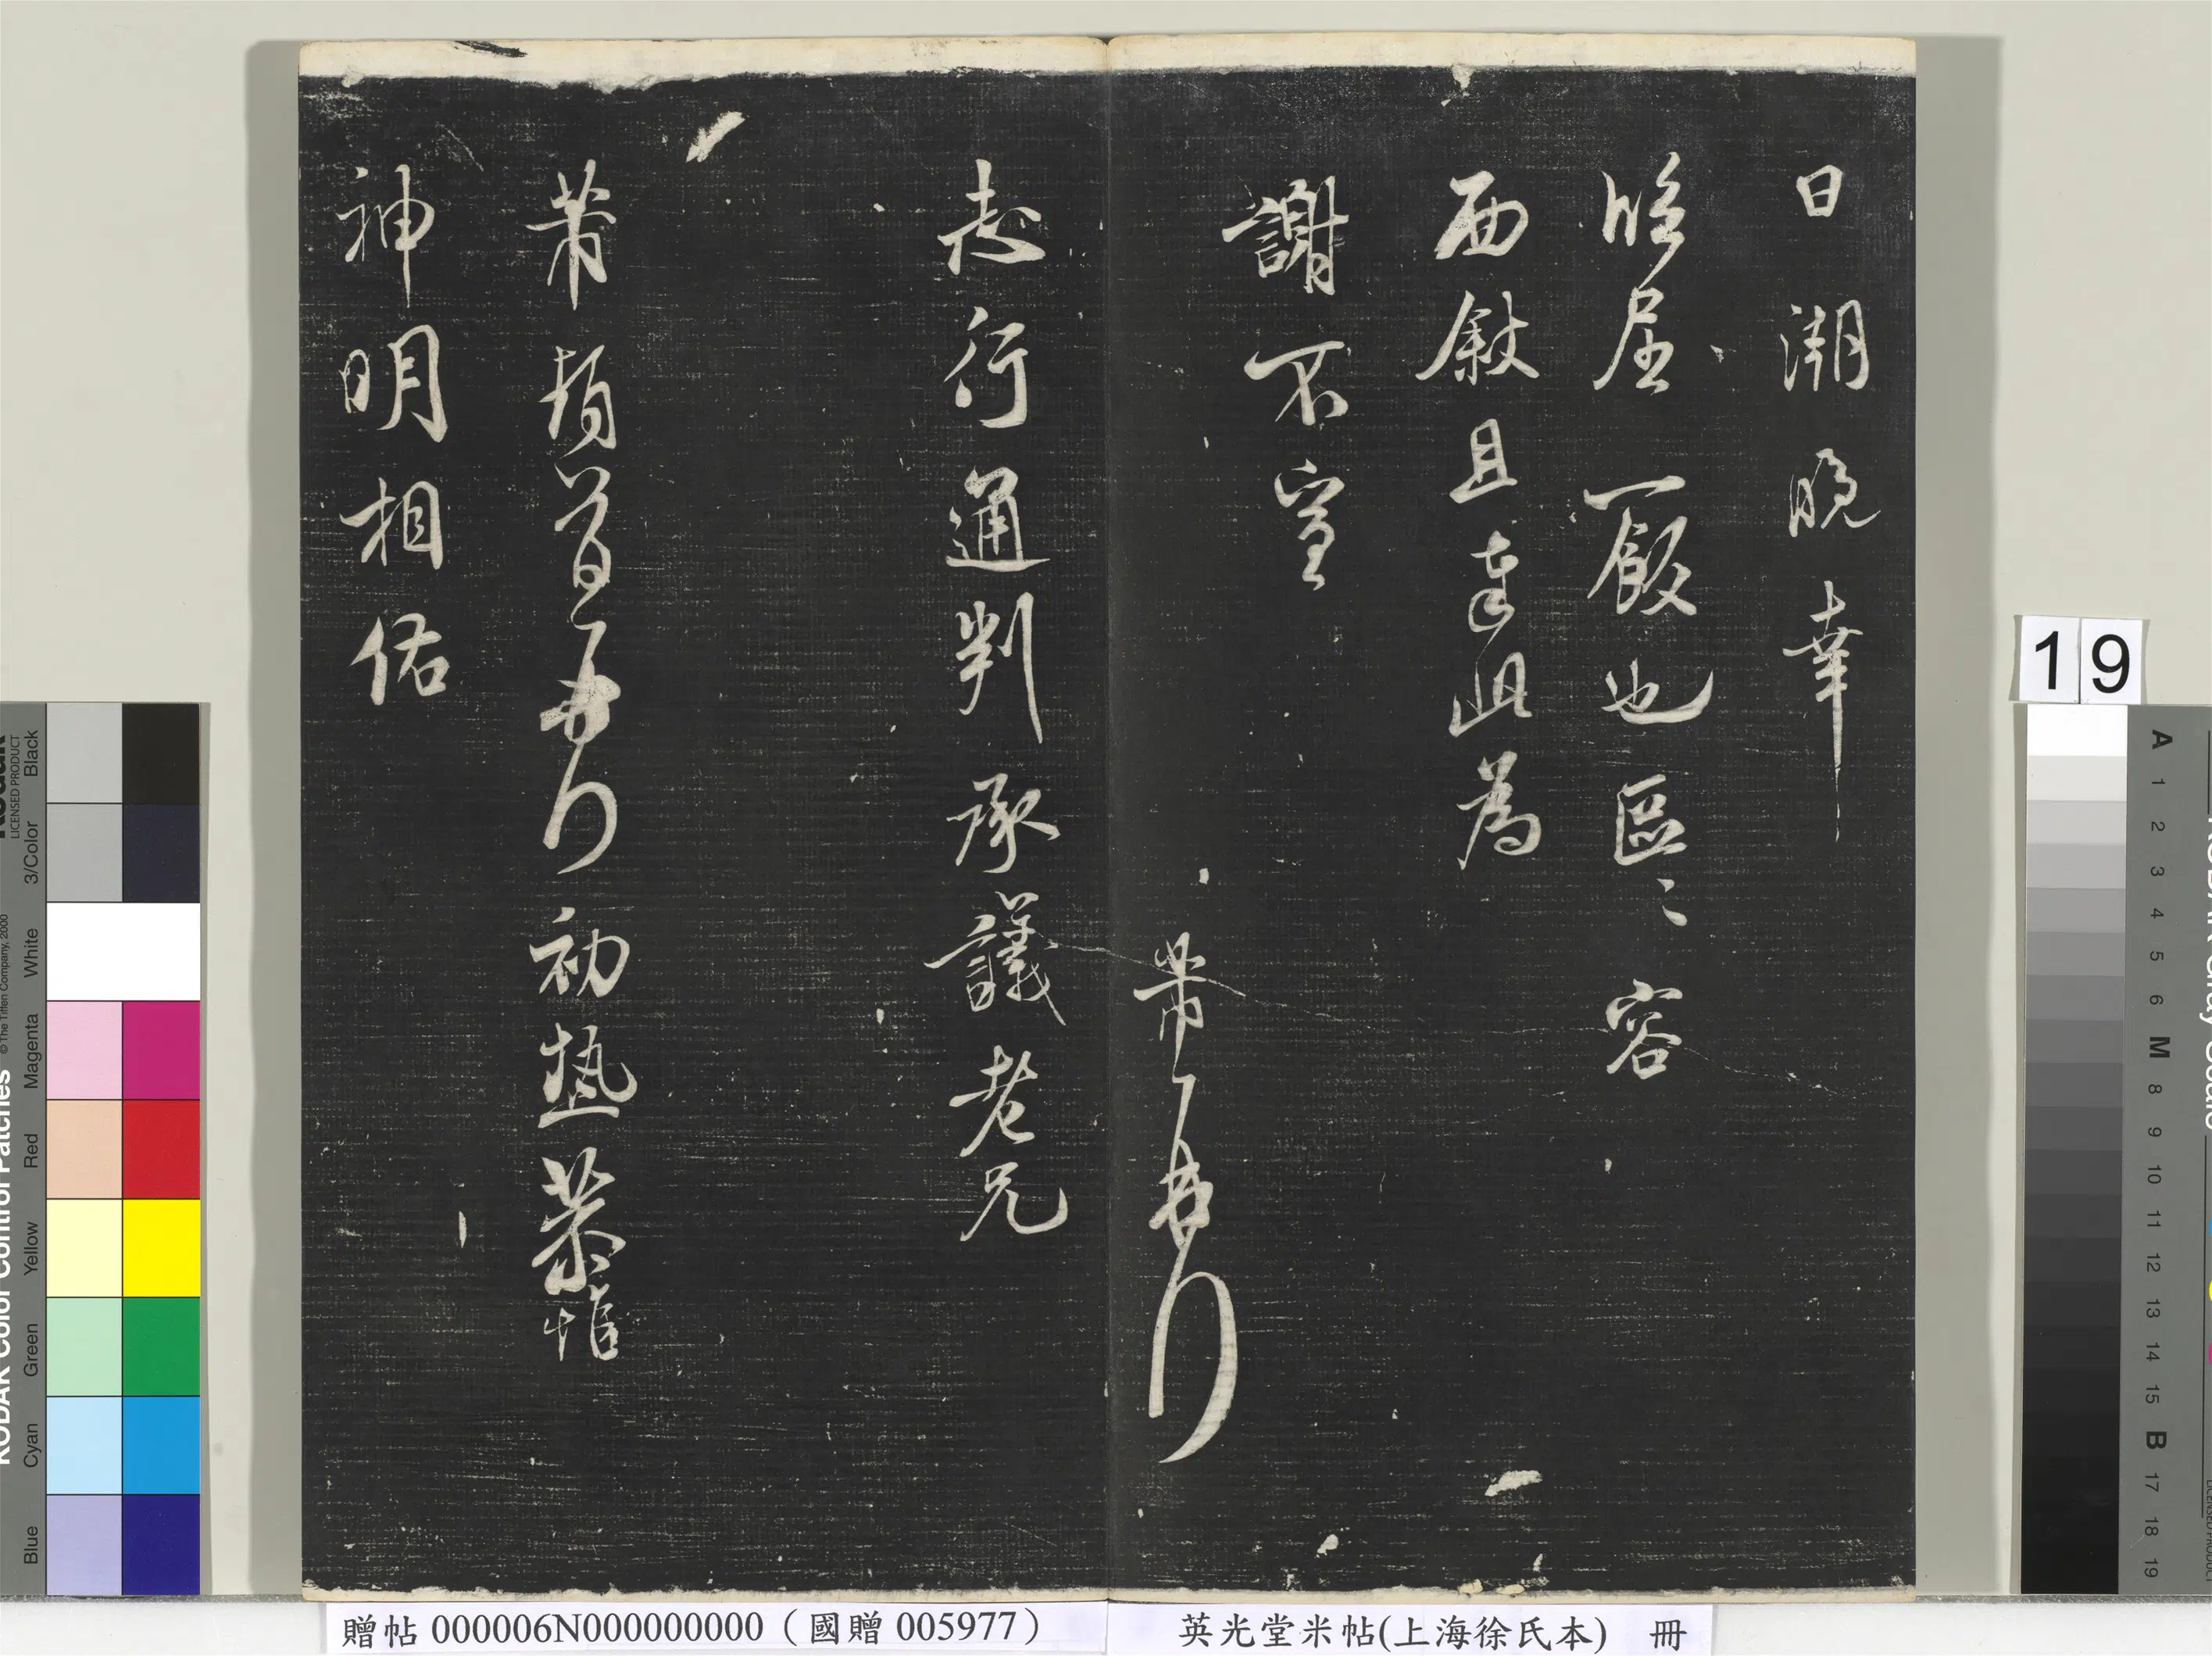 日潮晚幸
臨屈一飯也區〻容
面敘且達此為
謝不宣
芾頓首再拜
志行通判承議老兄
芾頓首再拜初熱恭惟
神明相佑
19
贈帖 000006N000000000（國贈 005977）
英光堂米帖(上海徐氏本) 冊
KODAK Color Control Patches
© The Tiffen Company, 2000
LICENSED PRODUCT
Blue Cyan Green Yellow Red Magenta White 3/Color Black
A 1 2 3 4 5 6 M 8 9 10 11 12 13 14 15 B 17 18 19